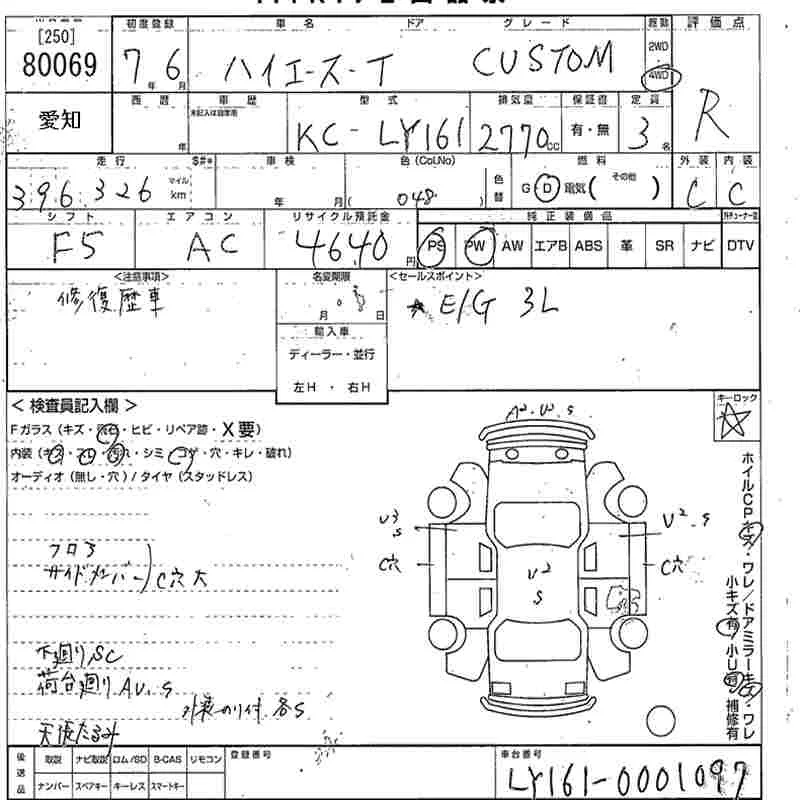 [250]
80069
愛知
初度登録 車名 ドア グレード 駆動 評価点
7年 6月 ハイエース-T CUSTOM 2WD 4WD R
西暦 車歴 型式 排気量 保証書 定員
未記入は自家用
年 KC-LY161 2770cc 有・無 3名
走行 S#* 車検 色(Col.No) 燃料 外装 内装
396,326 マイル km 年 月 ( 048 ) 色替 G D 電気( その他 ) C C
シフト エアコン リサイクル預託金 純正装備品
F5 AC 4640円 PS PW AW エアB ABS 革 SR ナビ DTV
<注意事項> 名変期限 <セールスポイント>
修復歴車 月 日 ☆ E/G 3L
輸入車
ディーラー・並行
左H・右H
< 検査員記入欄 > キーロック
Fガラス (キズ・飛石・ヒビ・リペア跡・X要)
内装 (キズ・スレ・汚れ・シミ・コゲ・穴・キレ・破れ)
オーディオ (無し・穴) / タイヤ (スタッドレス)
A2.U2.S
U3 S
U2.S
C穴
C穴
U2 S
フロア
サイドメンバー C穴大
下廻りSC
荷台廻りAU.S
外装のり付 各S
天張たるみ
ホイルCPキズ・ワレ/ドアミラーキズ・ワレ
小キズ有 小U有 補修有
後送品 取説 ナビ取説 ロム/SD B-CAS リモコン 登録番号 車台番号
ナンバー スペアキー キーレス スマートキー LY161-0001097